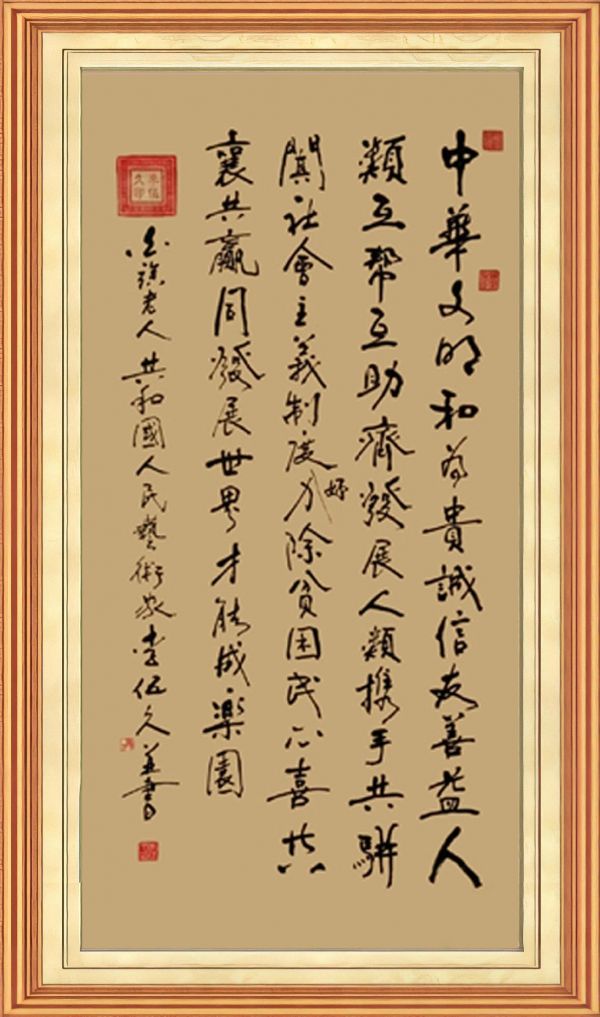 中華文明和為貴誠信友善益人
類互帮互助齊發展人類携手共駢
闐社會主義制度好力除貧困民心喜共
襄共贏同發展世界才能成樂園
老人共和國人民藝術家李伍久並書